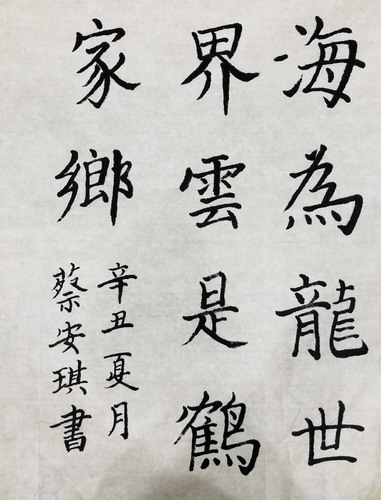 海為龍世
界雲是鶴
家鄉
辛丑夏月
蔡安琪書